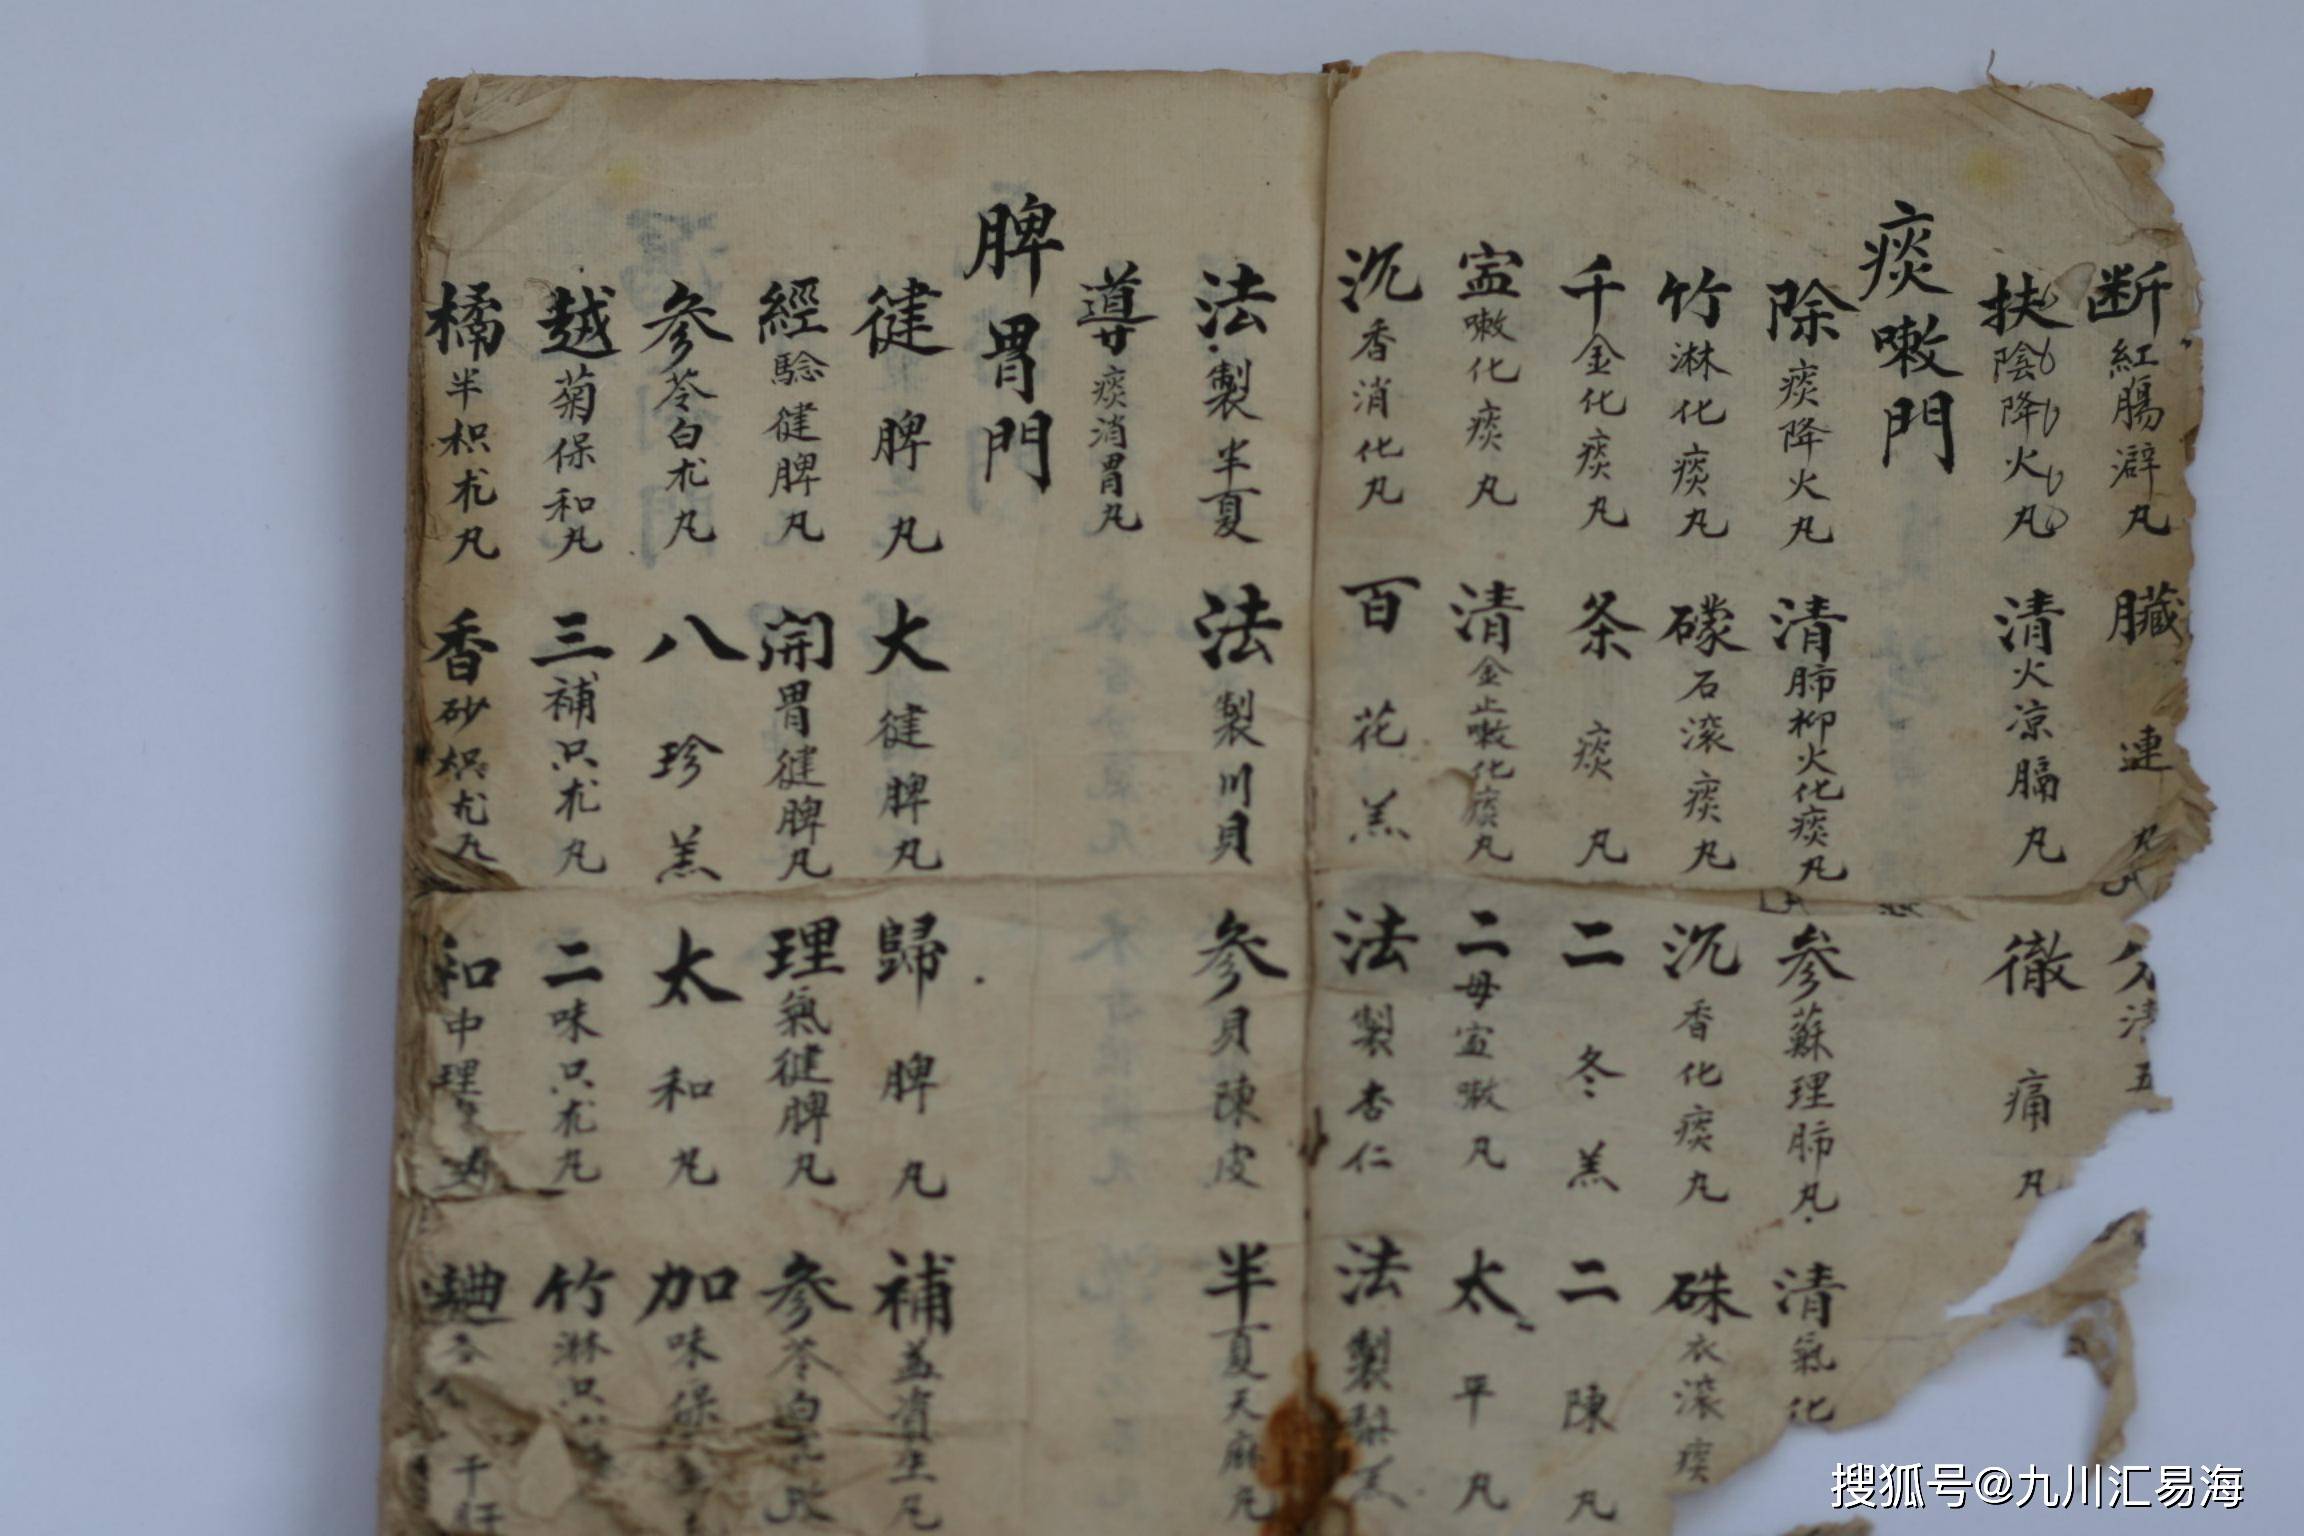 断紅腸澼丸 臟連丸 分清五
扶陰降火丸 清火凉膈丸 徹痛丸
痰嗽門
除痰降火丸 清肺抑火化痰丸 参蘇理肺丸 清氣化
竹淋化痰丸 礞石滚痰丸 沉香化痰丸 硃衣滚痰
千金化痰丸 条痰丸 二冬羔 二陳丸
寍嗽化痰丸 清金止嗽化痰丸 二母寍嗽丸 太平丸
沉香消化丸 百花羔 法製杏仁 法製
法製半夏 法製川貝 参貝陳皮 半夏天麻丸
導痰消胃丸
脾胃門
健脾丸 大健脾丸 歸脾丸 補益資生丸
經驗健脾丸 開胃健脾丸 理氣健脾丸 参苓白
参苓白朮丸 八珍羔 太和丸 加味保
越菊保和丸 三補只朮丸 二味只朮丸 竹淋只
橘半枳朮丸 香砂枳朮丸 和中理
搜狐号@九川汇易海